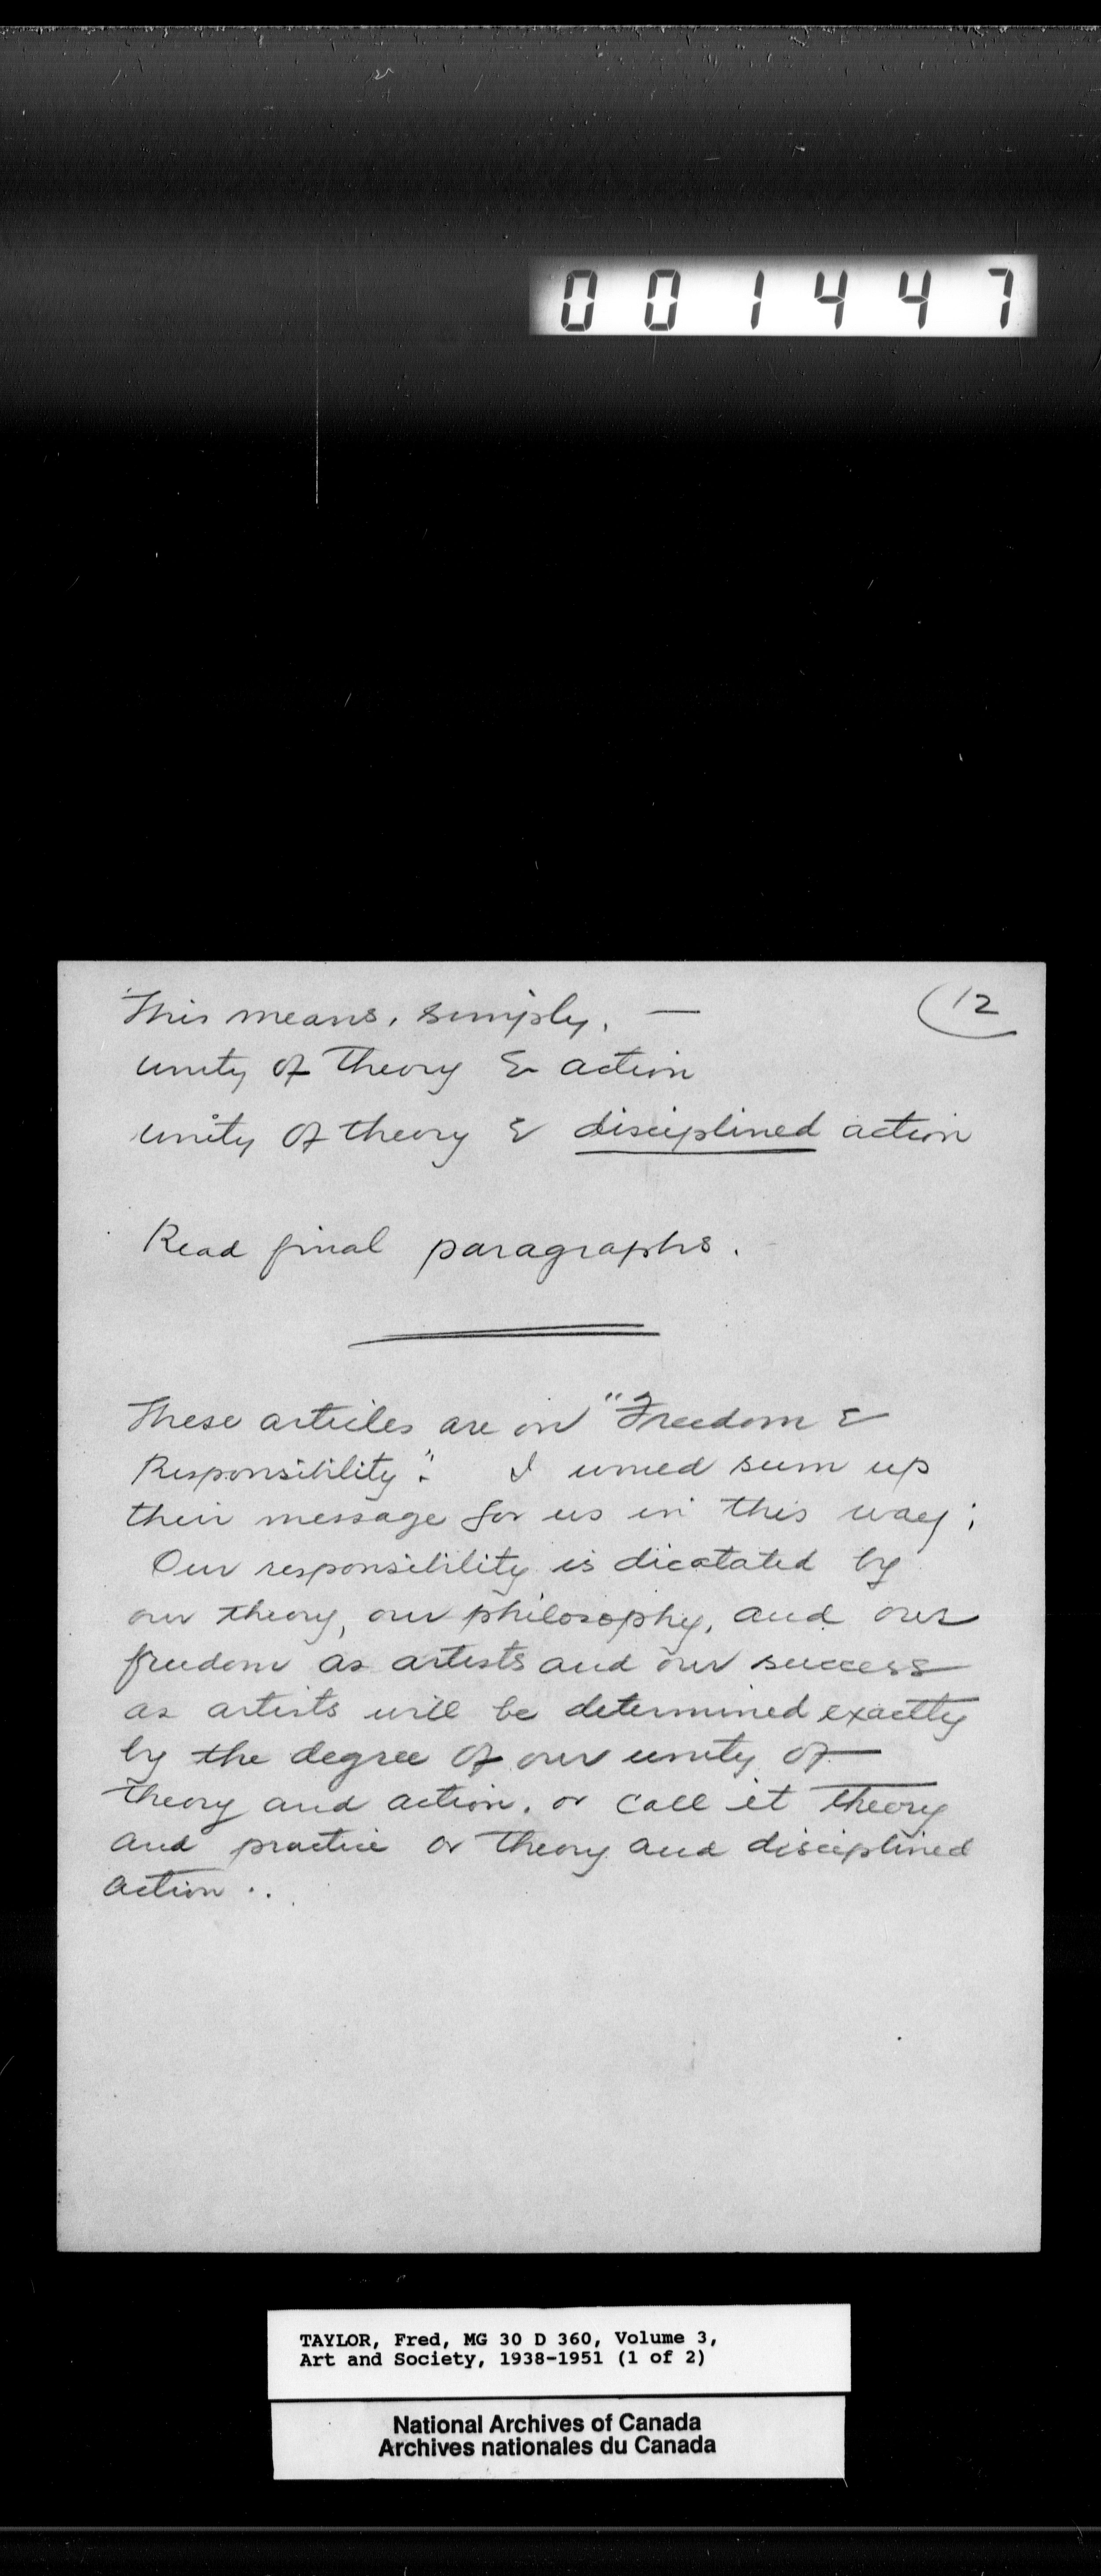 001447
This means, simply, —
12
unity of theory & action
unity of theory & disciplined action
Read final paragraphs.
These articles are on "Freedom &
Responsibility". I would sum up
their message for us in this way;
Our responsibility is dicatated by
our theory, our philosophy, and our
freedom as artists and our success
as artists will be determined exactly
by the degree of our unity of
theory and action, or call it theory
and practice or theory and disciplined
action ..
TAYLOR, Fred, MG 30 D 360, Volume 3,
Art and Society, 1938-1951 (1 of 2)
National Archives of Canada
Archives nationales du Canada